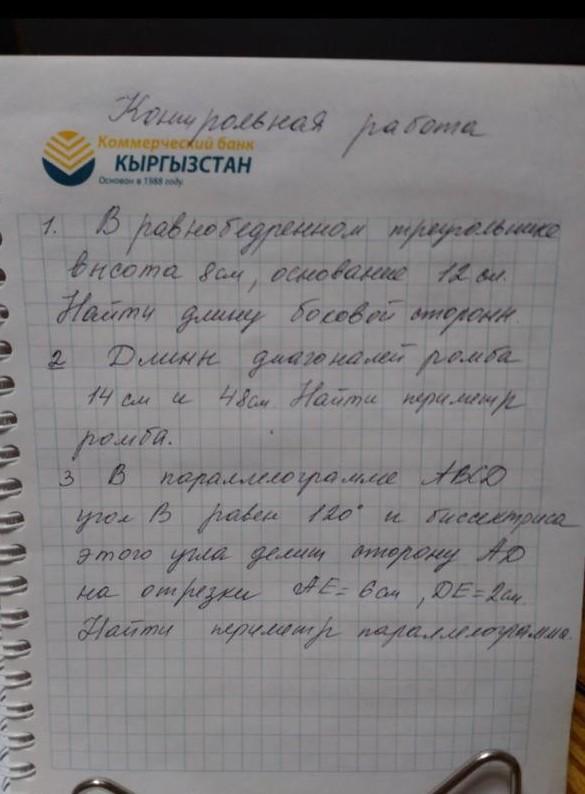 Контрольная работа
Коммерческий банк
КЫРГЫЗСТАН
Основан в 1988 году.
1. В равнобедренном треугольнике
высота 8 см, основание 12 см.
Найти длину боковой стороны
2 Длины диагоналей ромба
14 см и 48 см. Найти периметр
ромба.
3 В параллелограмме ABCD
угол B равен 120° и биссектриса
этого угла делит сторону AD
на отрезки AE = 6 см, DE = 2 см.
Найти периметр параллелограмма.